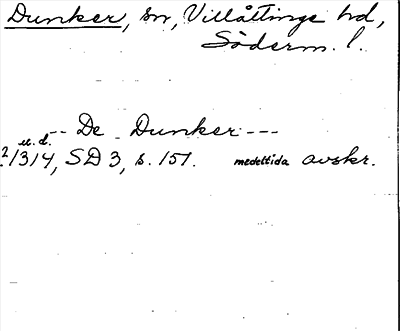 Dunker, sn, Villåttinge hd,
Söderm. l.
-- De Dunker ---
u. d.
2/3 14, SD 3, s. 151. medeltida avskr.